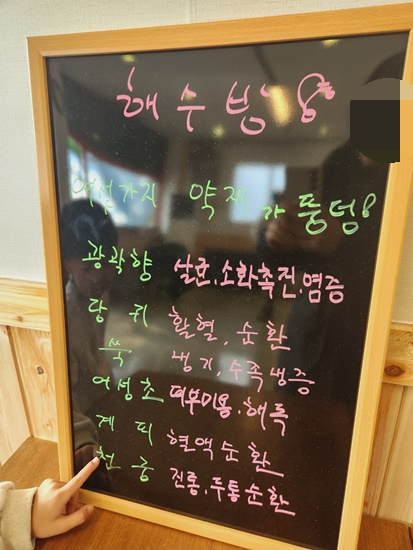 해수방
여섯가지 약재가 풍덩
광곽향 살균.소화촉진.염증
당귀 활혈, 순환
쑥 냉기, 수족냉증
어성초 피부미용.해독
계피 혈액순환
천궁 진통.두통순환